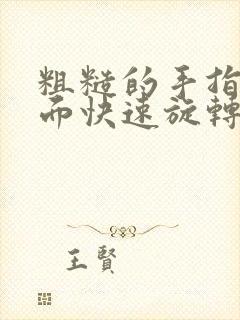 粗糙的手指
而快速旋轉
王賢